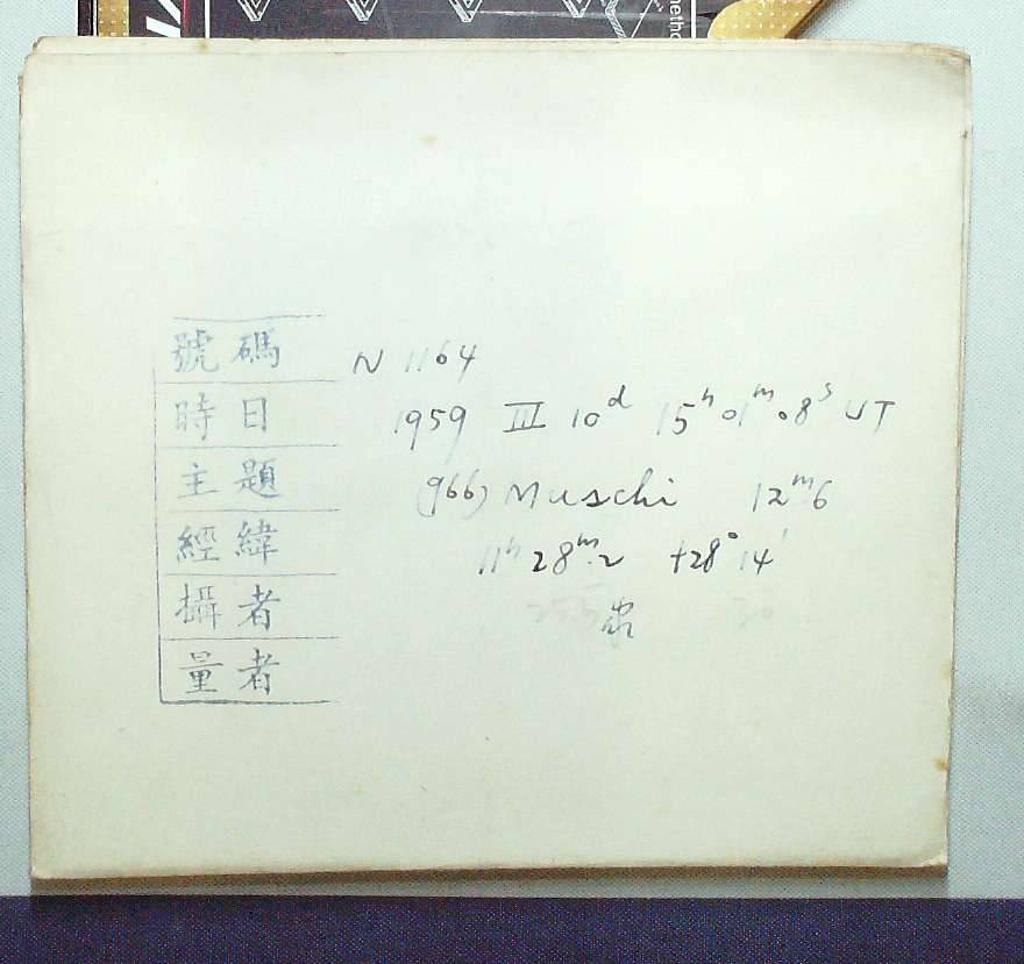 號碼 N 1164
時日 1959 III 10ᵈ 15ʰ 01ᵐ.8ˢ UT
主題 (966) Muschi 12ᵐ6
經緯 11ʰ 28ᵐ.2 +28° 14'
攝者
量者